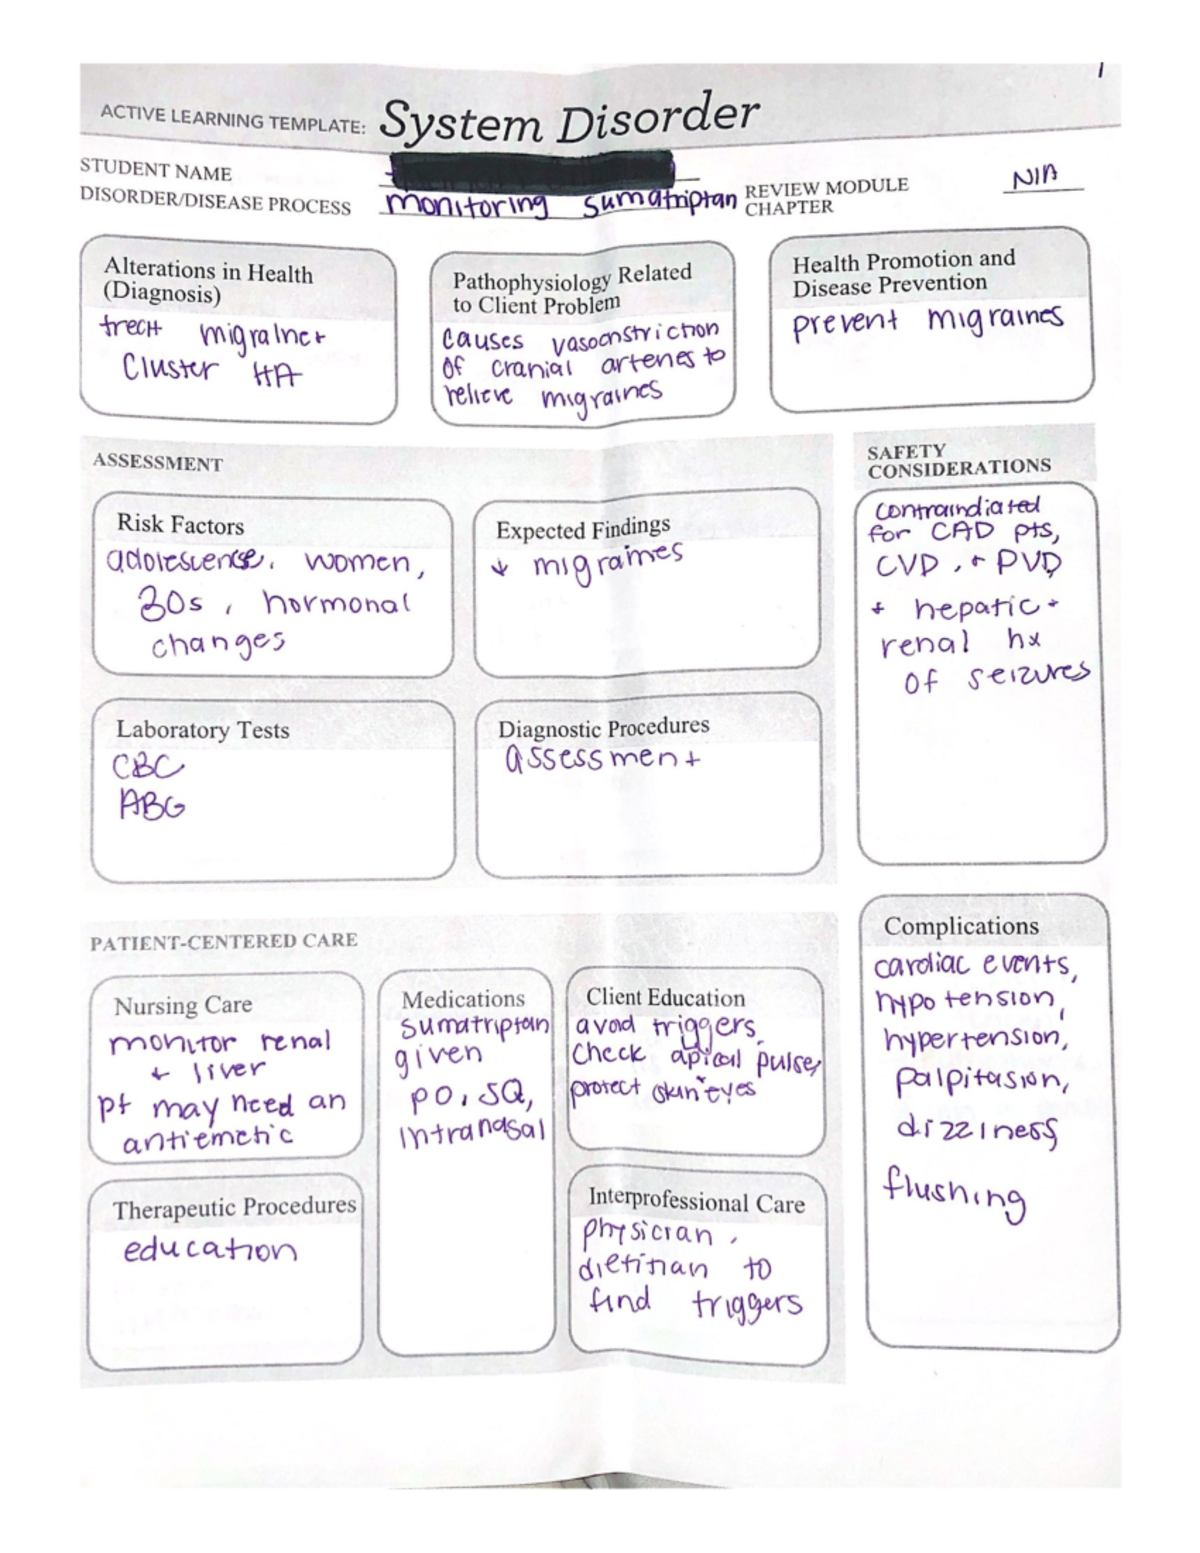 1
ACTIVE LEARNING TEMPLATE: System Disorder
STUDENT NAME
DISORDER/DISEASE PROCESS monitoring sumatriptan
REVIEW MODULE
CHAPTER
N/A
Alterations in Health
(Diagnosis)
treat migraine +
Cluster HA
Pathophysiology Related
to Client Problem
causes vasoconstriction
of cranial arteries to
relieve migraines
Health Promotion and
Disease Prevention
prevent migraines
ASSESSMENT
Risk Factors
adolescense, women,
30s, hormonal
changes
Expected Findings
↓ migraines
Laboratory Tests
CBC
ABG
Diagnostic Procedures
assessment
SAFETY
CONSIDERATIONS
contraindiated
for CAD pts,
CVD, + PVD
+ hepatic +
renal hx
of seizures
PATIENT-CENTERED CARE
Nursing Care
monitor renal
+ liver
pt may need an
antiemetic
Medications
sumatriptan
given
PO, SQ,
intranasal
Client Education
avoid triggers,
check apical pulse,
protect skin + eyes
Therapeutic Procedures
education
Interprofessional Care
physician,
dietitian to
find triggers
Complications
cardiac events,
hypotension,
hypertension,
palpitasion,
dizziness,
flushing